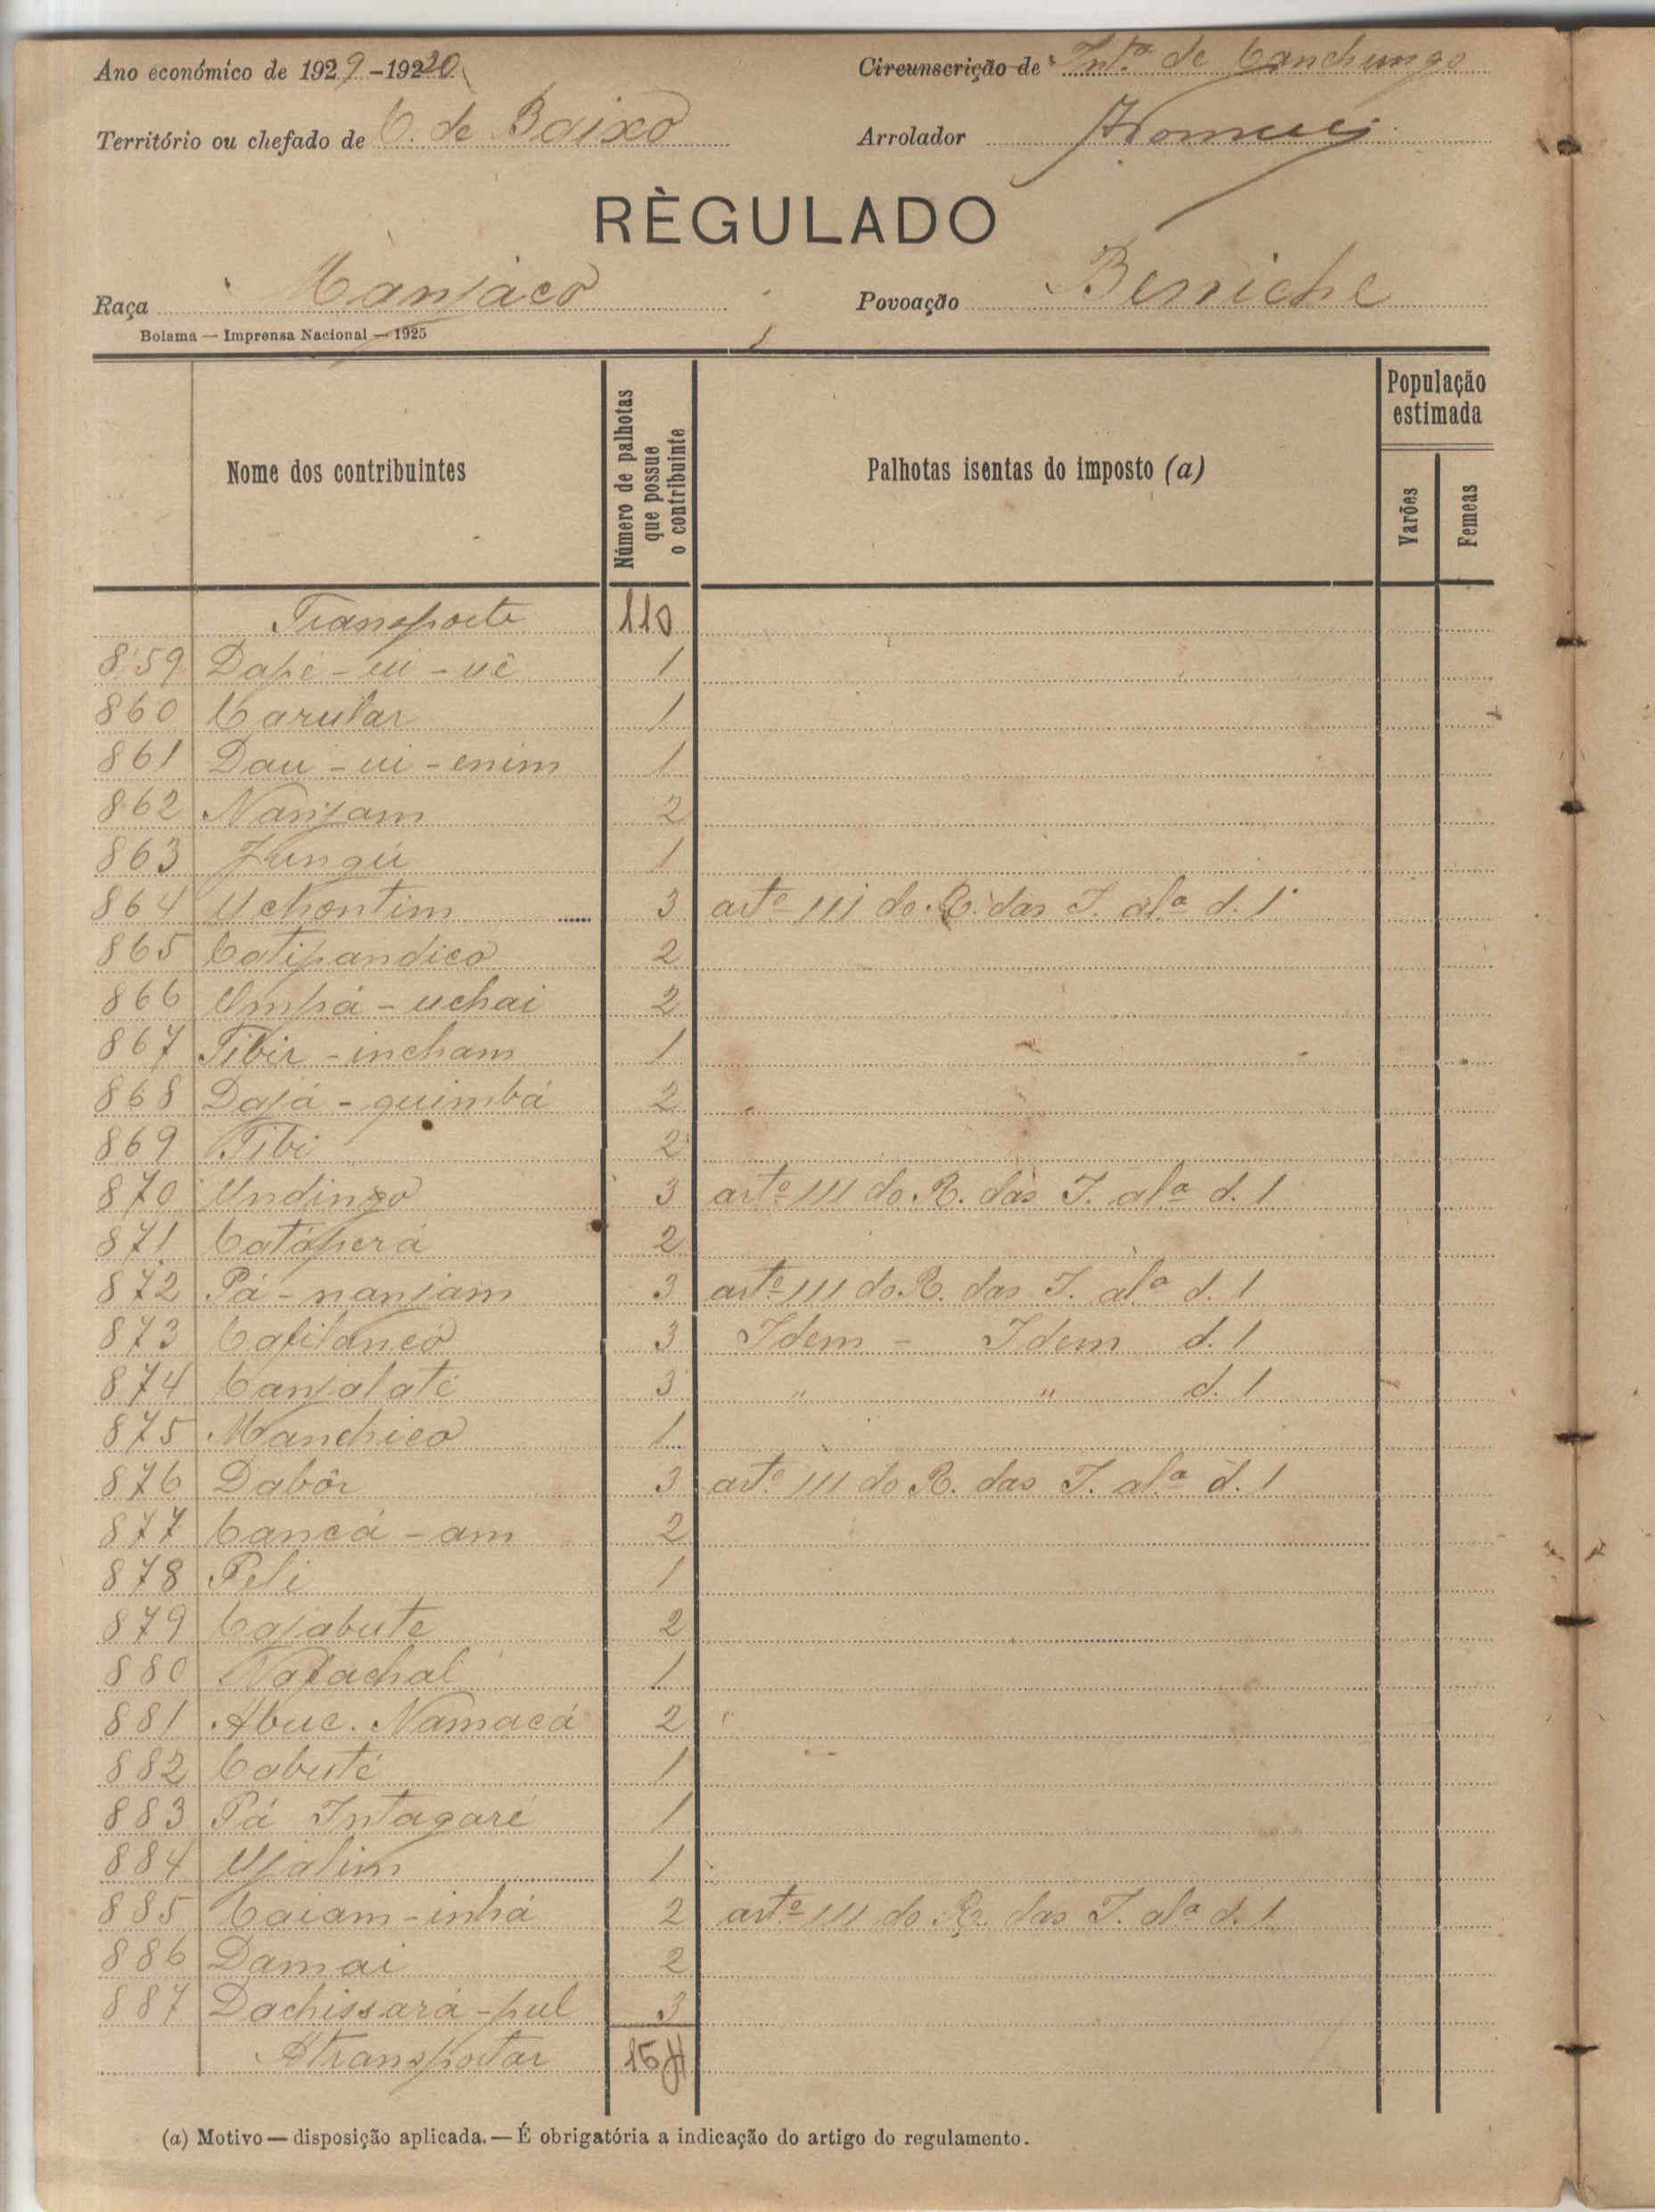 Ano económico de 1929-1920 Circunscrição de Int.ª de Canchungo
Território ou chefado de C. de Baixo Arrolador
RÈGULADO
Raça Manjaco Povoação Beniche
Bolama — Imprensa Nacional — 1925
Nome dos contribuintes Número de palhotas que possue o contribuinte Palhotas isentas do imposto (a) População estimada Varões Femeas
Transporte 110
859 Dapé-ui-uê 1
860 Carular 1
861 Dau-ui-enim 1
862 Nanjam 2
863 Jungú 1
864 Uchontim 3 artº 111 do R. das I. alª d. 1
865 Catipandico 2
866 Umpá-uchai 2
867 Tibir-incham 1
868 Dajá-quimbá 2
869 Tibi 2
870 Undingo 3 artº 111 do R. das I. alª d. 1
871 Catáperá 2
872 Pá-nanjam 3 artº 111 do R. das I. alª d. 1
873 Cafilancó 3 Idem - Idem d. 1
874 Canjalaté 3 " " d. 1
875 Manchico 1
876 Dabôr 3 artº 111 do R. das I. alª d. 1
877 Cancá-am 2
878 Peli 1
879 Cajabute 2
880 Nafachal 1
881 Abuc. Namacá 2
882 Cabuté 1
883 Pá Intagaré 1
884 Ujalim 1
885 Caiam-inhá 2 artº 111 do R. das I. alª d. 1
886 Damai 2
887 Dachissará-pul 3
A transportar
(a) Motivo — disposição aplicada. — É obrigatória a indicação do artigo do regulamento.